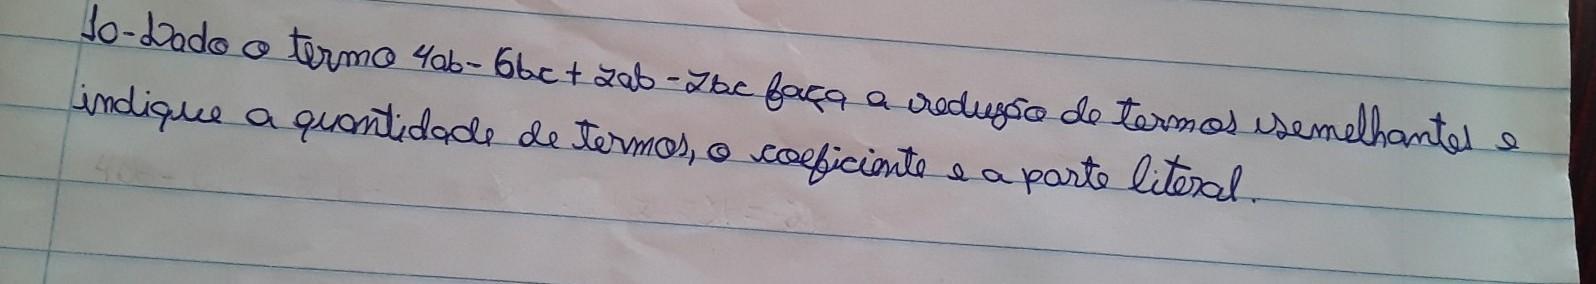 10-Dado o termo 4ab - 6bc + 2ab - 2bc faça a redução de termos semelhantes e
indique a quantidade de termos, o coeficiente e a parte literal.